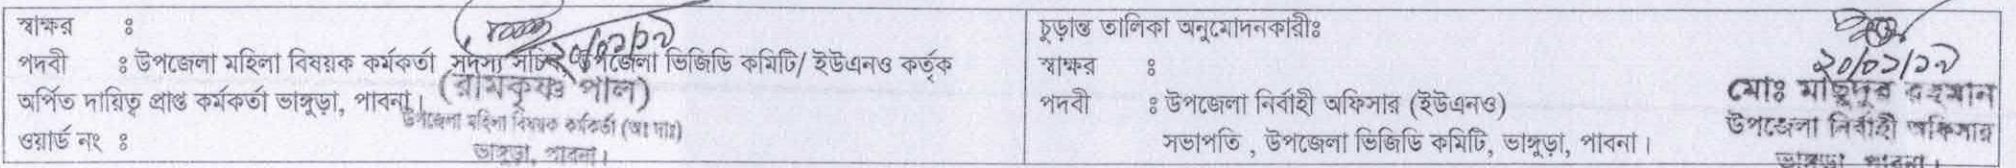 স্বাক্ষর ঃ
পদবী ঃ উপজেলা মহিলা বিষয়ক কর্মকর্তা সদস্য সচিব উপজেলা ভিজিডি কমিটি/ ইউএনও কর্তৃক
অর্পিত দায়িত্ব প্রাপ্ত কর্মকর্তা ভাঙ্গুড়া, পাবনা।
(রামকৃষ্ণ পাল)
উপজেলা মহিলা বিষয়ক কর্মকর্তা (অঃ দাঃ)
ভাঙ্গুড়া, পাবনা।
ওয়ার্ড নং ঃ
চুড়ান্ত তালিকা অনুমোদনকারীঃ
স্বাক্ষর ঃ
পদবী ঃ উপজেলা নির্বাহী অফিসার (ইউএনও)
সভাপতি , উপজেলা ভিজিডি কমিটি, ভাঙ্গুড়া, পাবনা।
মোঃ মাছুদুর রহমান
উপজেলা নির্বাহী অফিসার
ভাঙ্গুড়া, পাবনা।